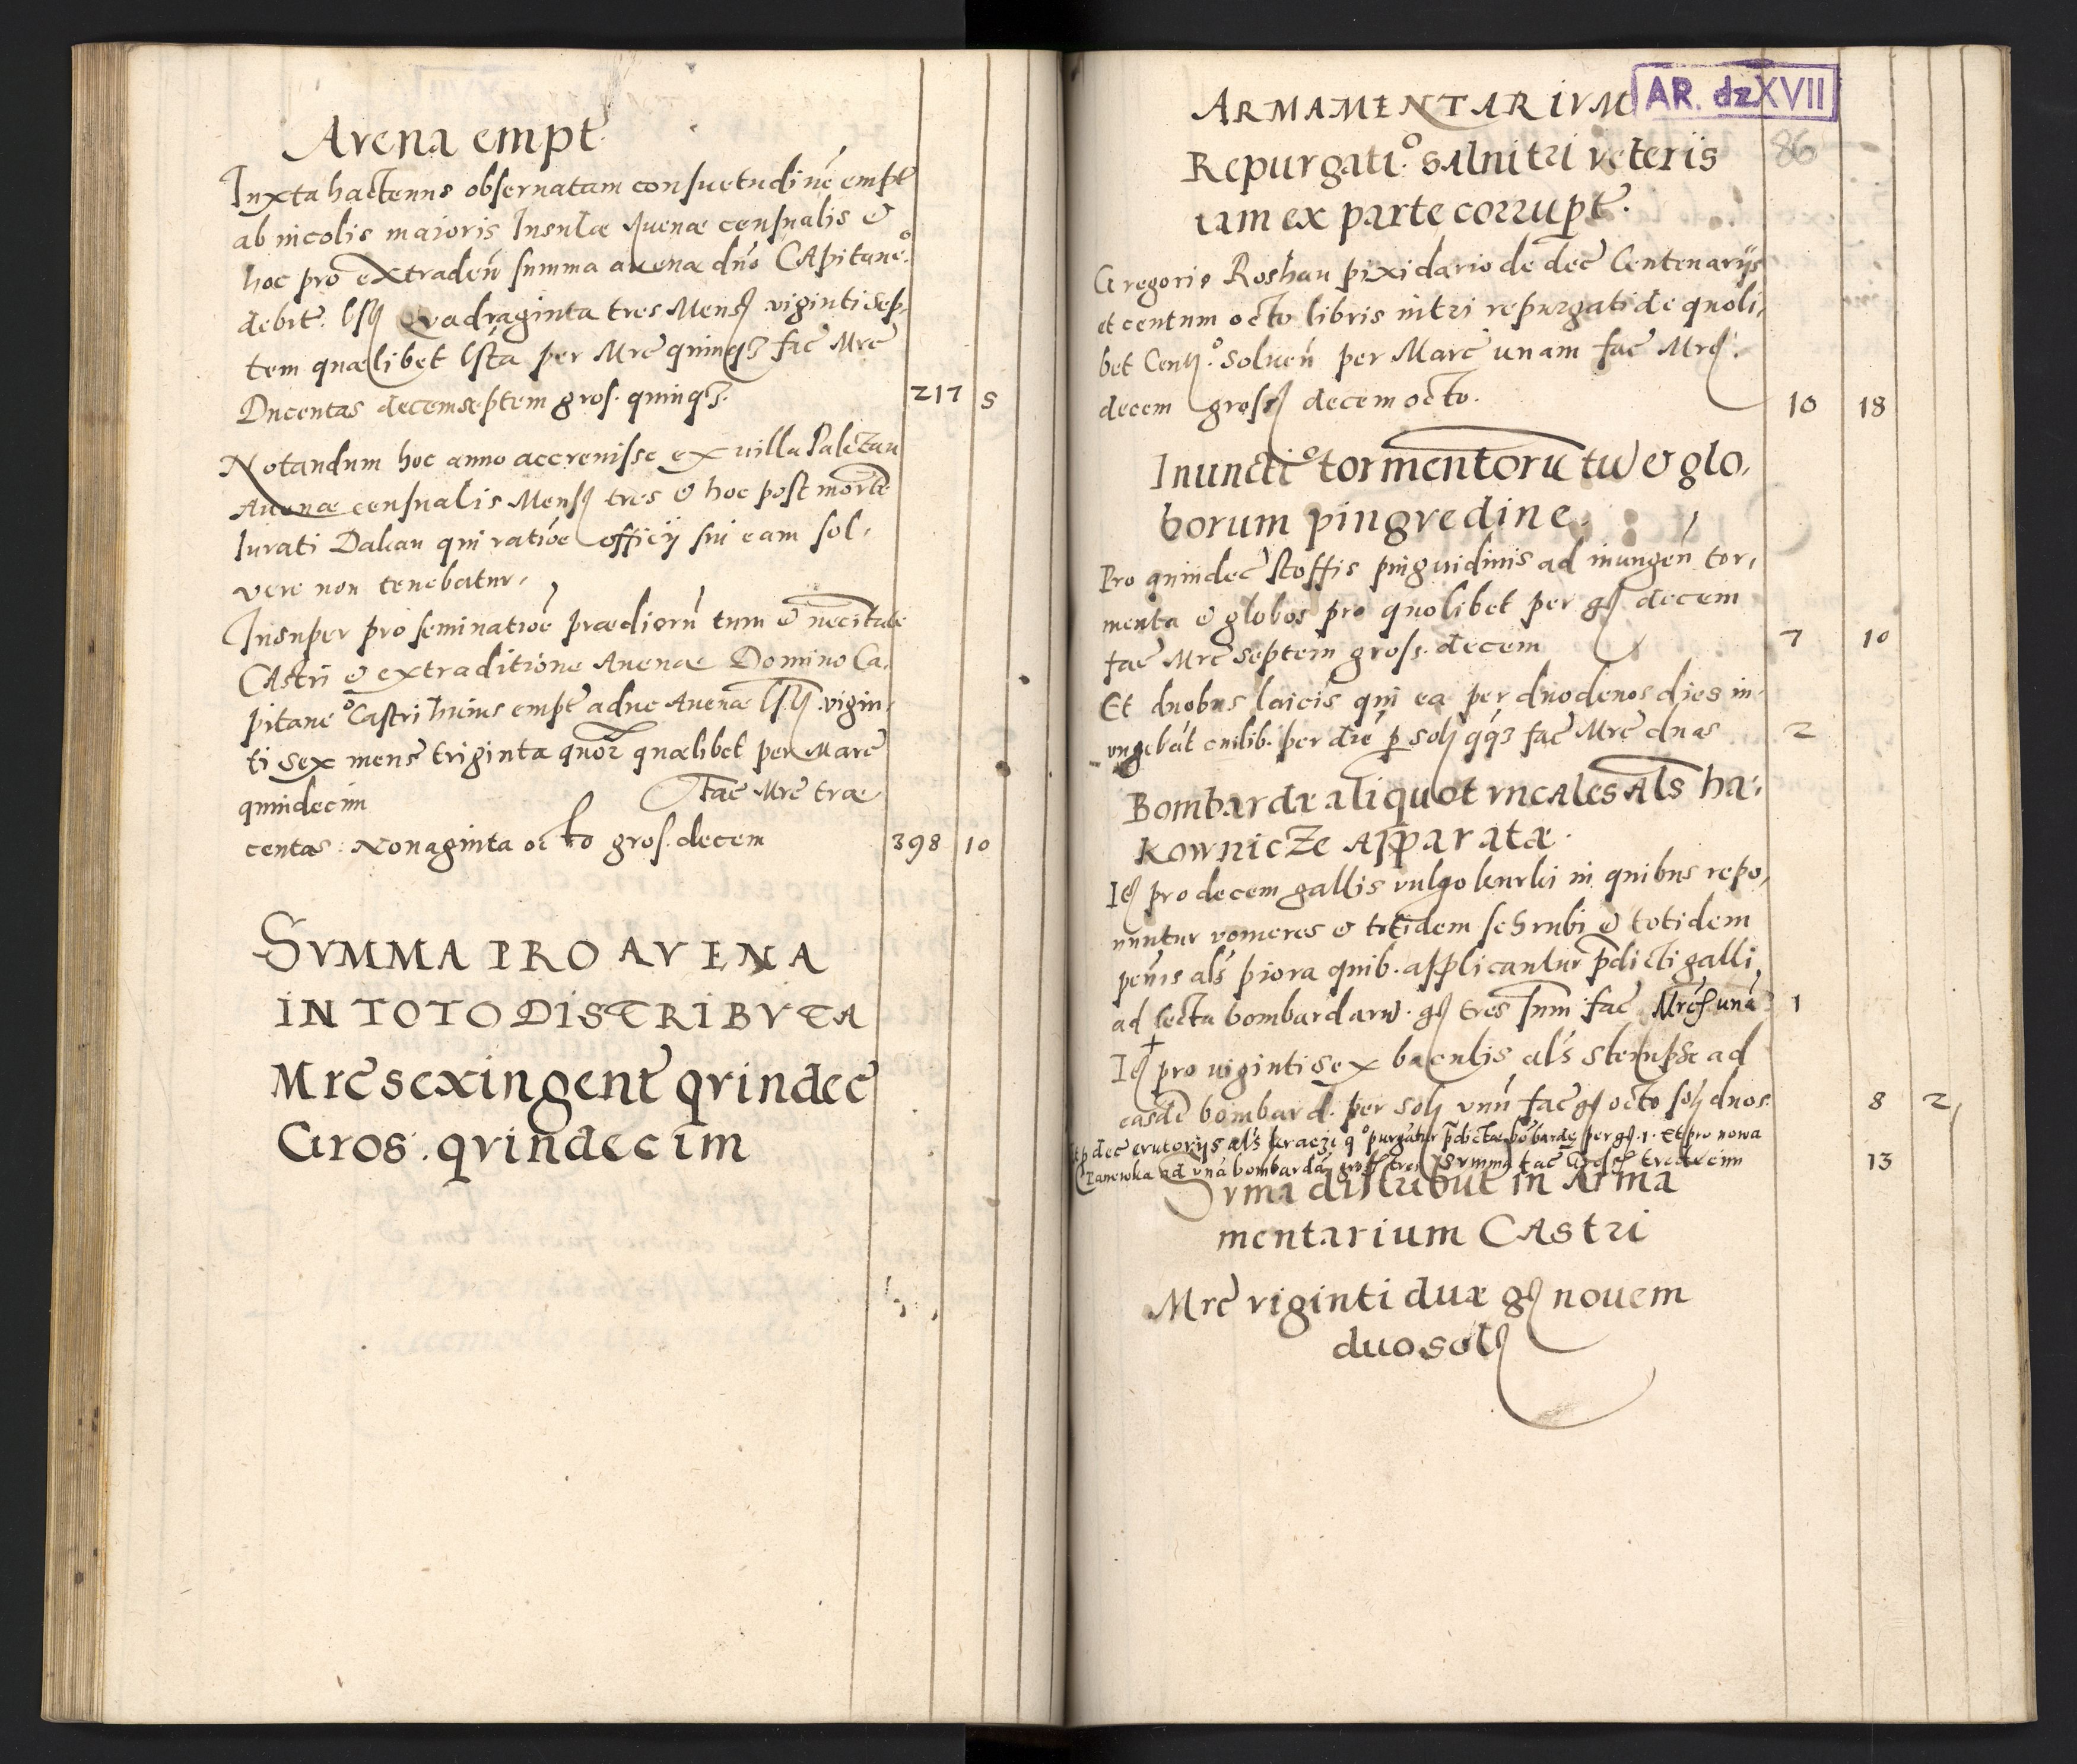 Avena empt̄
Iuxta hactenus obseruatam consuetudinē empt̄
ab incolis maioris Insulæ Auenæ censualis &
hoc pro extradeń summa auenæ dńo CApitaneº
debit̄. lſtß Qvadraginta tres Mensß viginti sep,
tem quælibet lsta per Mrc̄ quinqꝫ fac̄ Mrc̄
Ducentas decemseptem gros. quinqꝫ. 217 5
Notandum hoc anno accreuisse ex villa Palczau
Auenæ censualis Mensß tres & hoc post mortē
Iurati Dalcau qui ratiōe officij sui eam sol,
vere non tenebatur,
Insuper pro seminatiōe prædiorū tum & necitate
CAstri & extraditione Auenæ Domino Ca,
pitaneº Castri huius empt̄ adue Auenæ lstß vigin,
ti sex mens̄ triginta quōr quælibet per Marc̄
quindecim fac̄ Mrc̄ træ
centas: Nonaginta octo gros. decem 398 10
SVMMA PRO AVENA
IN TOTO DISTRIBVTA
Mrc̄ sexingent̄ qvindec̄
Gros. qvindecim
ARMAMENTARIVM AR. dz XVII
Repurgatiº. sAlnitri veteris 86
iam ex parte corrupt̄.
Gregorio Roshau pixidario de dec̄ Centenarijs
et centum octo libris nitri repurgati de quoli,
bet Centß.º soluen̄ per Marc̄ unam fac̄ Mrcß.
decem grosß decem octo. 10 18
Inunctiº tormentorū tū & glo,
borum pingvedine.
Pro quindec̄ stoffis pinguidinis ad inungeń tor,
menta & globos pro quolibet per gß decem
fac̄ Mrc̄ septem gross. decem 7 10
Et duobus laicis qui ea per duodenos dies in,
ungebāt cuilib. per dīe p̱ solß qq́ꝫ fac̄ Mrc̄ duas 2
Bombardæ aliquot vncAles Als ha,
kownicze Apparatæ.
Itß pro decem gallis vulgo kurki in quibus repo,
nuntur vomeres & totidem schrubi & totidem
penis als piora quib. applicantur p̄dicti galli
ad lecta bombardarū. gß tres sum̄ fac̄ Mrcß unā 1
Itß pro viginti sex baculis als stempsle ad
easdē bombard. per solß vnū fac̄ gß octo solß duos. 8 2
It p dec̄ erutorijs als kraczi qº purgātur p̄dictæ bōbardę per gß. 1. Et pro nowa
Panewka ad vnā bombardā grosß tres Summa fac̄ Grosß tredecim 13
Svma distribut̄ in Arma
mentarium CAstri
Mrc̄ viginti duæ gß nouem
duo solß